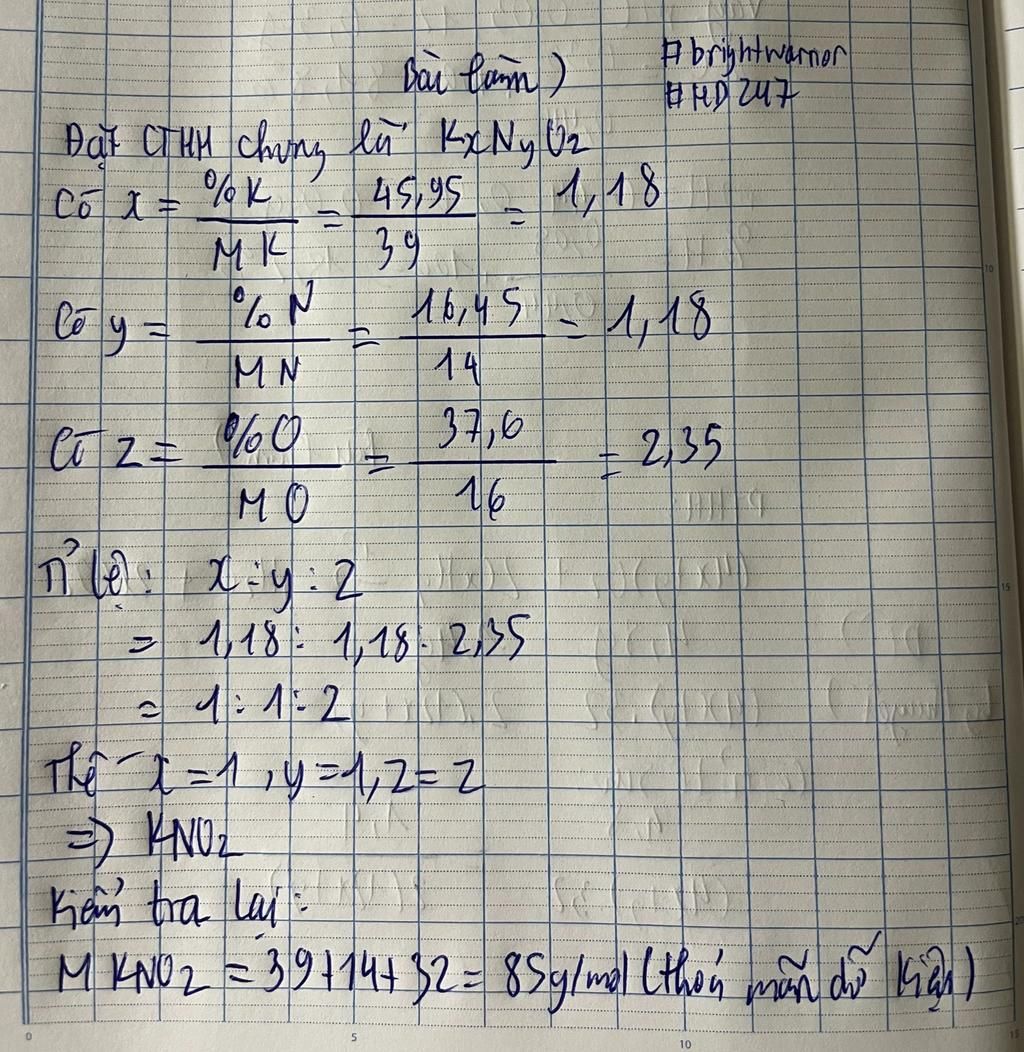 Bài làm)
#brightwarrior
#HD247
Đặt CTHH chung là KxNyOz
Có x = %K / MK = 45,95 / 39 = 1,18
Có y = %N / MN = 16,45 / 14 = 1,18
Có z = %O / MO = 37,6 / 16 = 2,35
Tỉ lệ: x : y : z
= 1,18 : 1,18 : 2,35
= 1 : 1 : 2
Thế x = 1, y = 1, z = 2
=> KNO2
Kiểm tra lại:
M KNO2 = 39+14+32 = 85g/mol (thoả mãn dữ kiện)